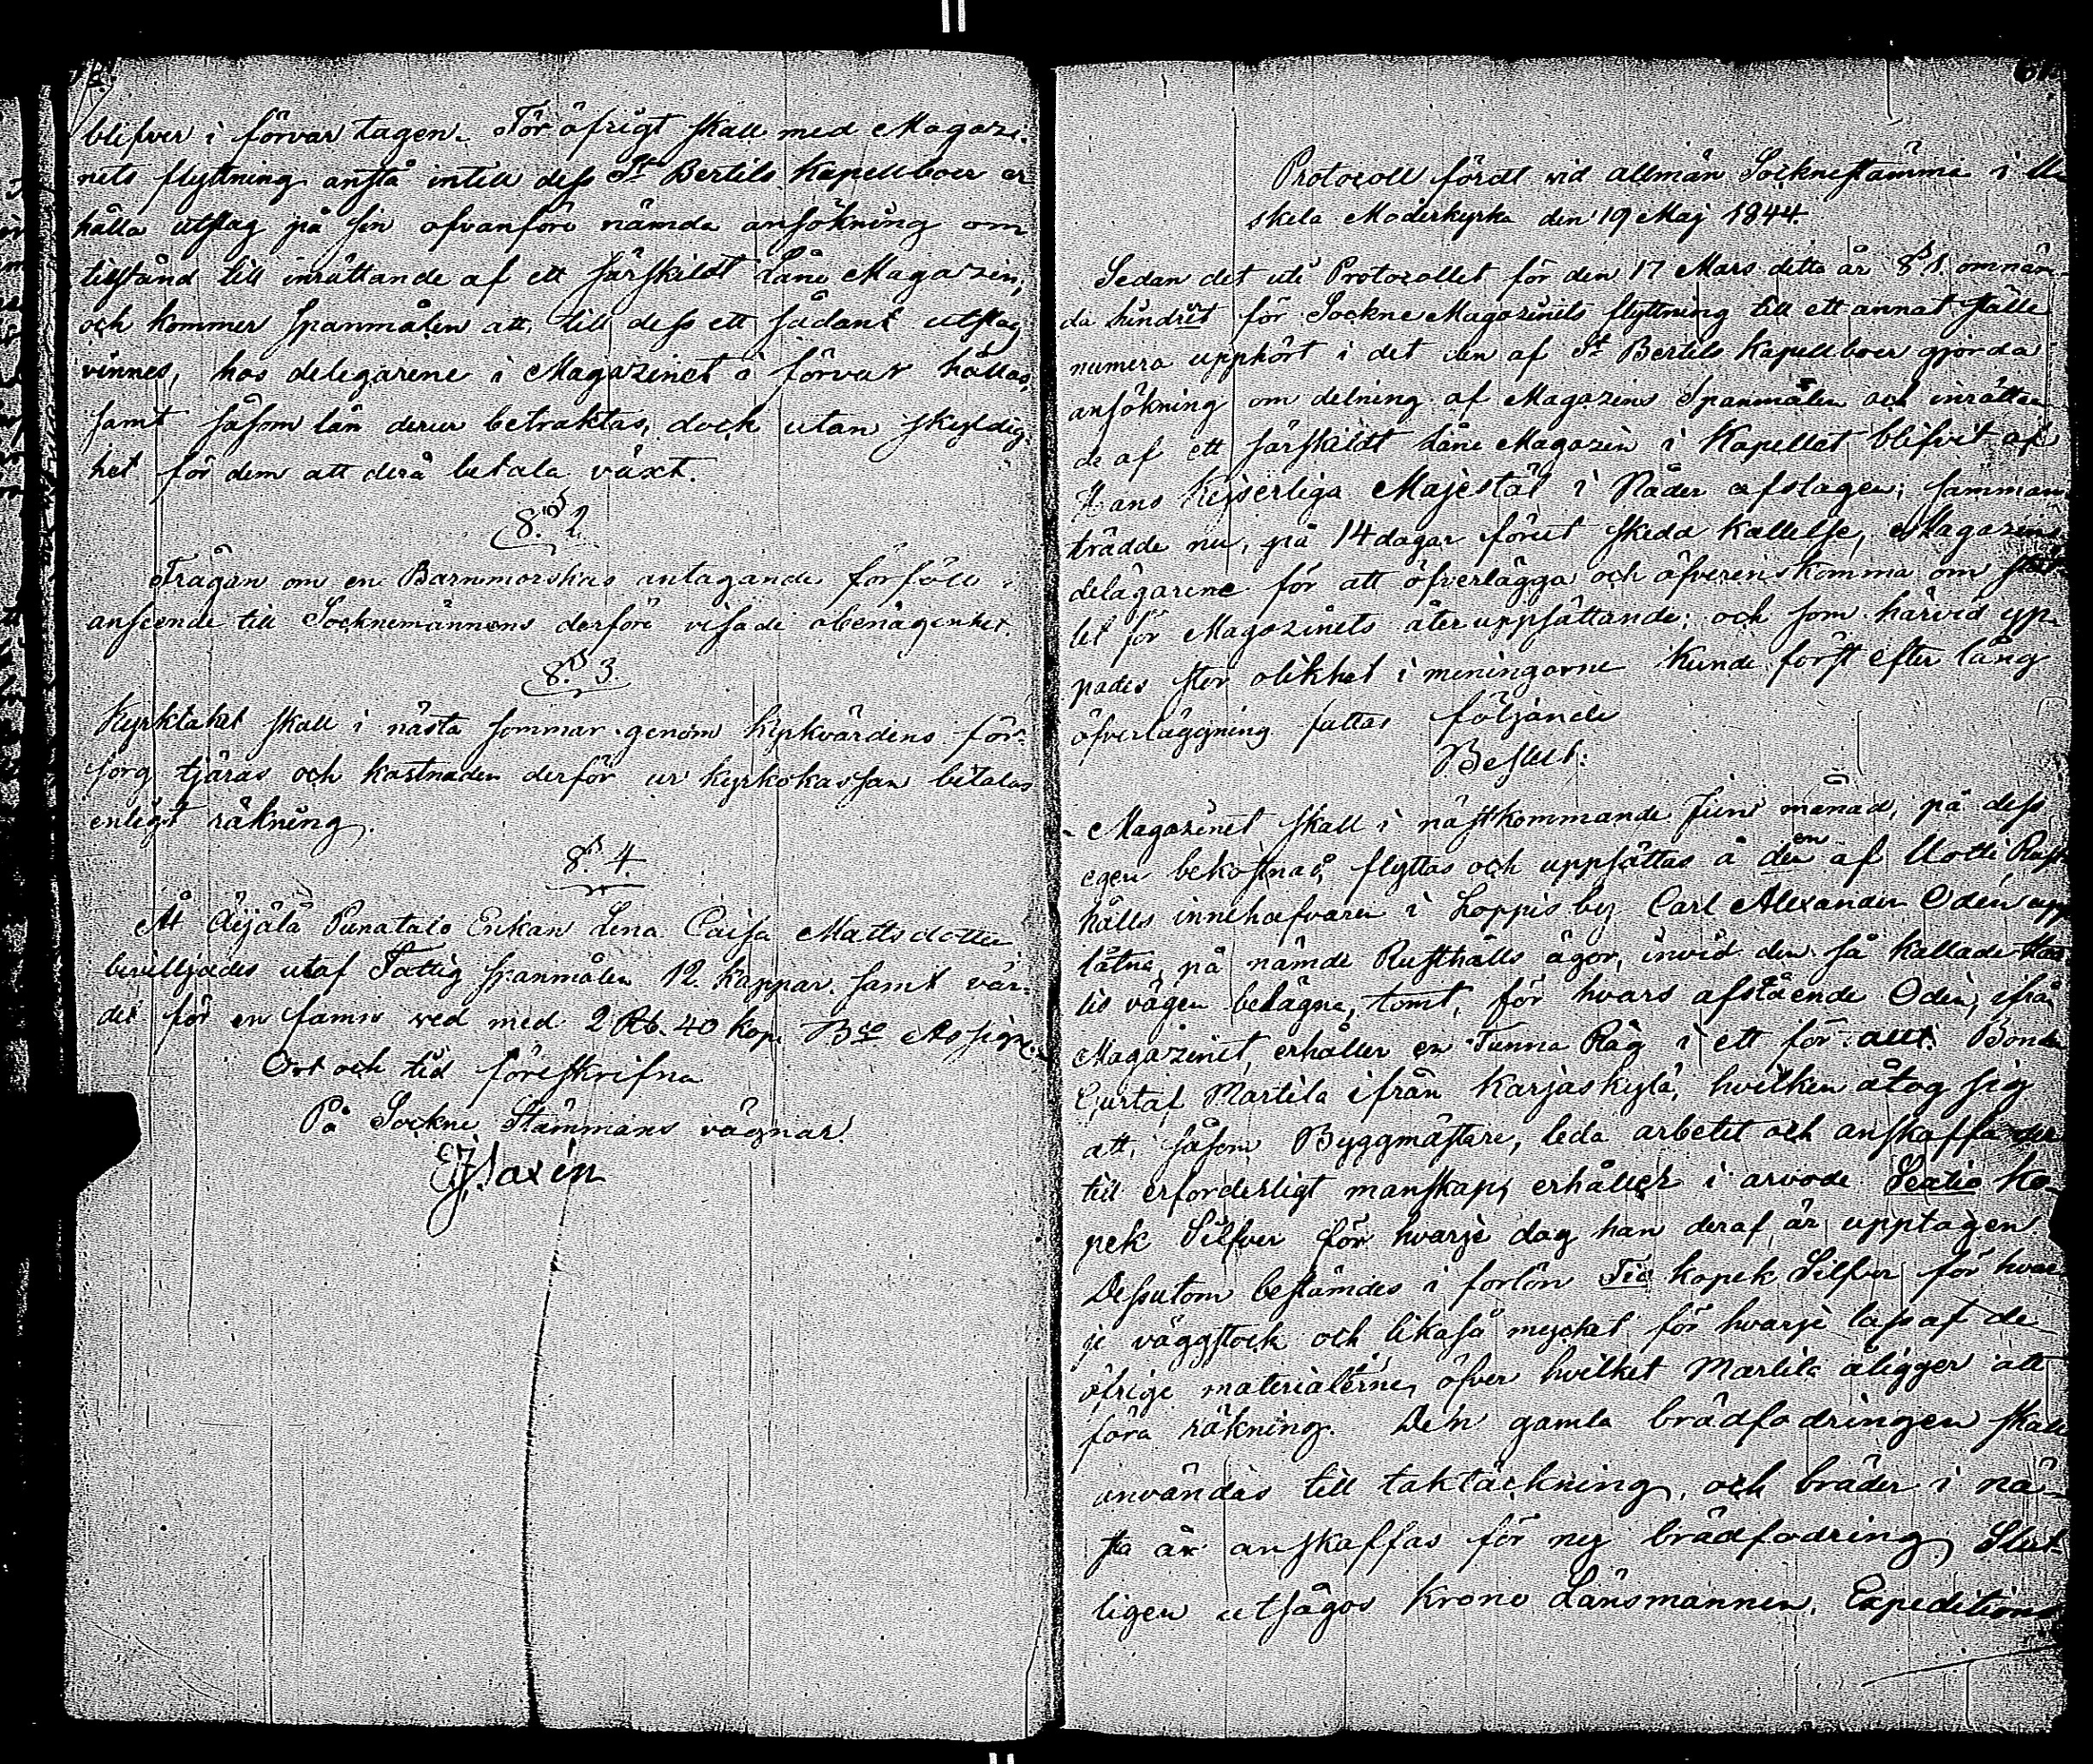 blifver i förvar tagen. För öfrigt skall med Magazi-
nets flyttning anstå intill dess St Bertils Kapellboer er
hålla utslag på sin ofvanföre nämde ansökning om
tillstånd till inrättande af ett särskildt Låne Magazin,
och kommer Spanmålen att, till dess ett sådant utslag
vinnes, hos delegarene i Magazinet i förvar hållas,
samt såsom lån derur betraktas, dock utan skyldig-
het för dem att derå betala växt.
§. 2.
Frågan om en Barnmorskas antagande förföll i
anseende till Socknemännens derföre visade obenägenhet.
§. 3.
Kyrktaket skall i nästa sommar genom kyrkvärdens för-
sorg tjäras och kostnaden derför ur kyrkokassan betalas
enligt räkning.
§. 4.
Åt Äijälä Punatalo Enkan Lena Caisa Mattsdotter
beviljades utaf Fattig spanmålen 12 kappar samt vär-
det för en famn ved med 2 Rb. 40 kop. Bco Assign.
Ort och tid föreskrifna
På Sockne Stämmans vägnar
Saxén
Protocoll fördt vid allmän Sockne stämma i
skela Moderkyrka den 19 Maj 1844.
Sedan det uti Protocollet för den 17 Mars detta år § 1. omnäm-
da hindret för Sockne Magazinets flyttning till ett annat ställe
numera upphört i det den af St Bertils Kapellboer gjorda
ansökning om delning af Magazins Spanmålen och inrättan
de af ett särskildt Låne Magazin i Kapellet blifvit af
Hans Kejserliga Majestät i Nåder afslagen; samman
trädde nu, på 14 dagar förut skedd kallelse, Magazins
delägarene för att öfverlägga och öfverenskomma om stäl
let för Magazinets återuppsättande; och som härvid yp-
pades stor olikhet i meningarne kunde först efter lång
öfverläggning fattas följande
Beslut:
Magazinet skall i nästkommande Juni månad, på dess
egen bekostnad, flyttas och uppsättas å den af Uotti Rust
hålls innehafvaren i Loppis by Carl Alexander Odén upp
låtna, på nämde Rusthålls ägor, invid den så kallade
tis vägen belägna, tomt, för hvars afstående Odén, ifrån
Magazinet, erhåller en Tunna Råg i ett för allt. Bonden
Gustaf Martila ifrån Karjaskylä, hvilken åtog sig
att, såsom Byggmästare, leda arbetet och anskaffa der
till erforderligt manskap, erhåller i arvode Sextio ko-
pek Silfver för hvarje dag han deraf är upptagen.
Dessutom bestämdes i forlön Tio kopek Silfver för hvar
je väggstock och likaså mycket för hvarje lass af de
öfrige materialerne, öfver hvilket Martila åligger att
föra räkning. Den gamla brädfodringen skall
användas till taktäckning, och bräder i nä-
sta år anskaffas för ny brädfodring. Slut-
ligen utsågos Krono Länsmannen, Expeditions